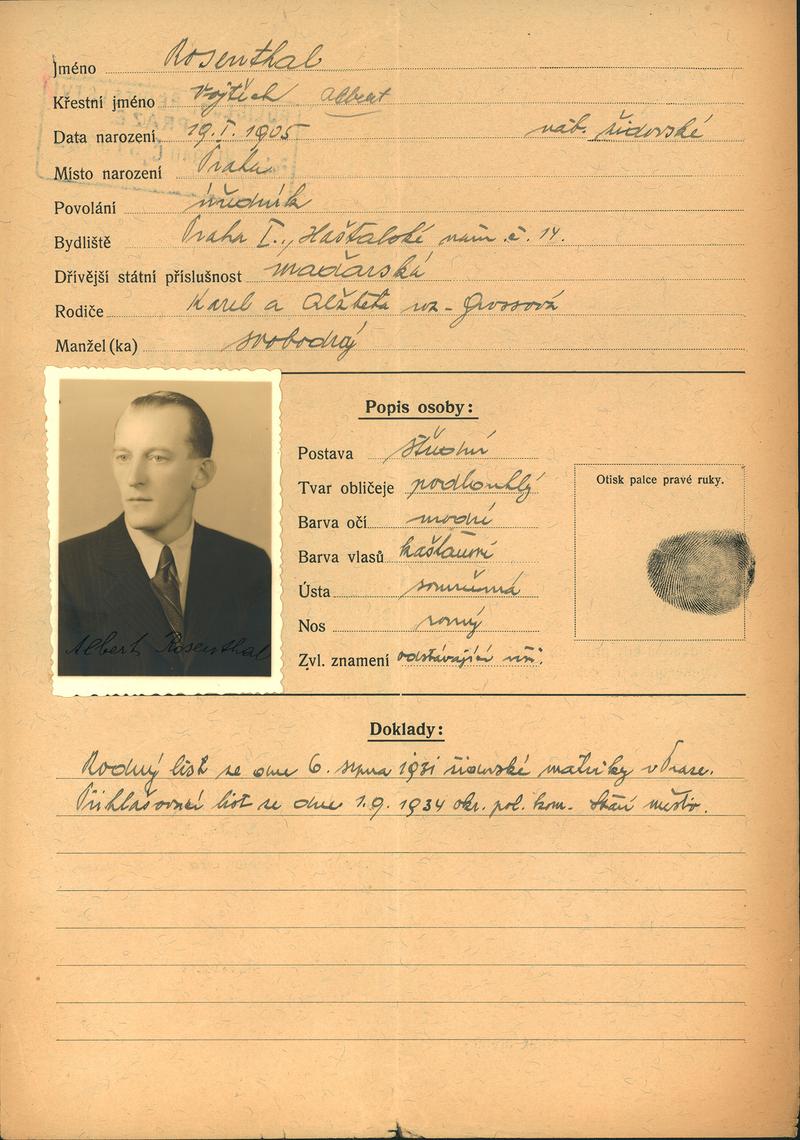 Jméno Rosenthal
Křestní jméno Vojtěch Albert
Data narození 19.I.1905 náb. židovské
Místo narození Praha
Povolání úředník
Bydliště Praha I., Haštalské nám. č. 14.
Dřívější státní příslušnost maďarská
Rodiče Karel a Alžběta roz. Grossová
Manžel (ka) svobodný
Popis osoby:
Postava střední
Tvar obličeje podlouhlý
Barva očí modré
Barva vlasů kaštanové
Ústa souměrná
Nos rovný
Zvl. znamení odstávající uši.
Otisk palce pravé ruky.
Albert Rosenthal
Doklady:
Rodný list ze dne 6. srpna 1931 židovské matriky v Praze.
Přihlašovací list ze dne 1.9. 1934 okr. pol. kom. Staré město.